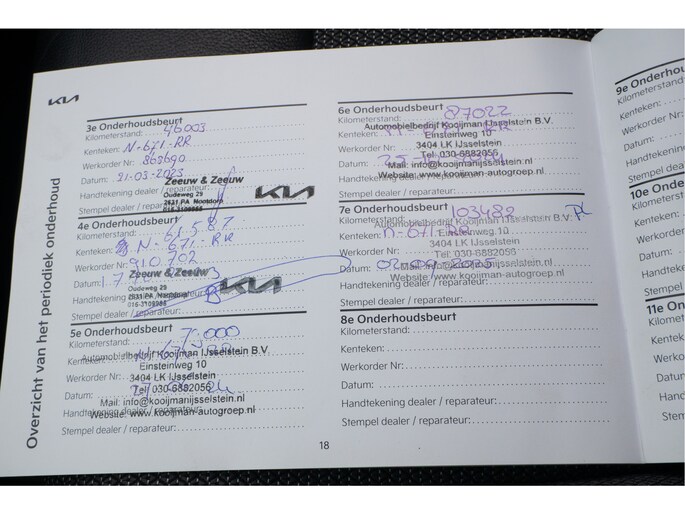 KIA
Overzicht van het periodiek onderhoud
3e Onderhoudsbeurt
Kilometerstand: 46003
Kenteken: N-671-RR
Werkorder Nr: 868690
Datum: 21-03-2023
Handtekening dealer / reparateur:
Stempel dealer / reparateur:
Zeeuw & Zeeuw
Oudeweg 29
2631 PA Nootdorp
KIA
4e Onderhoudsbeurt
Kilometerstand: 61587
Kenteken: N-671-RR
Werkorder Nr: 910702
Datum:
Handtekening dealer / reparateur:
Stempel dealer / reparateur:
Zeeuw & Zeeuw
Oudeweg 29
2631 PA Nootdorp
KIA
5e Onderhoudsbeurt
Kilometerstand: 70.000
Kenteken:
Werkorder Nr:
Datum:
Handtekening dealer / reparateur:
Stempel dealer / reparateur:
Automobielbedrijf Kooijman IJsselstein B.V.
Einsteinweg 10
3404 LK IJsselstein
Tel: 030-6882056
Mail: info@kooijmanijsselstein.nl
Website: www.kooijman-autogroep.nl
6e Onderhoudsbeurt
Kilometerstand: 87022
Kenteken:
Werkorder Nr:
Datum:
Handtekening dealer / reparateur:
Stempel dealer / reparateur:
Automobielbedrijf Kooijman IJsselstein B.V.
Einsteinweg 10
3404 LK IJsselstein
Tel: 030-6882056
Mail: info@kooijmanijsselstein.nl
Website: www.kooijman-autogroep.nl
7e Onderhoudsbeurt
Kilometerstand: 103480
Kenteken: N-671-RR
Werkorder Nr:
Datum: 02-09-2025
Handtekening dealer / reparateur:
Stempel dealer / reparateur:
Automobielbedrijf Kooijman IJsselstein B.V.
Einsteinweg 10
3404 LK IJsselstein
Tel: 030-6882056
Mail: info@kooijmanijsselstein.nl
Website: www.kooijman-autogroep.nl
8e Onderhoudsbeurt
Kilometerstand:
Kenteken:
Werkorder Nr:
Datum:
Handtekening dealer / reparateur:
Stempel dealer / reparateur:
18
9e Onderhoud
Kilometerstand:
Kenteken:
Werkorder
Datum:
Handtekening
Stempel deale
10e Onderho
Kilometerstan
Kenteken:
Werkorder N
Datum:
Handtekenin
Stempel deal
11e Onder
Kilometerst
Kenteken:
Werkorder
Datum:
Handteken
Stempel d